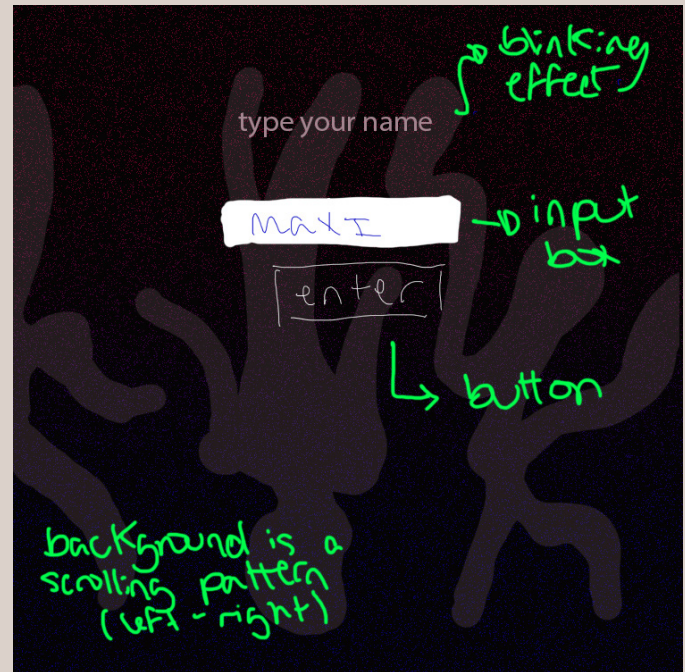 blinking
effect
type your name
maxI
input
box
enter
button
background is a
scrolling pattern
(left-right)